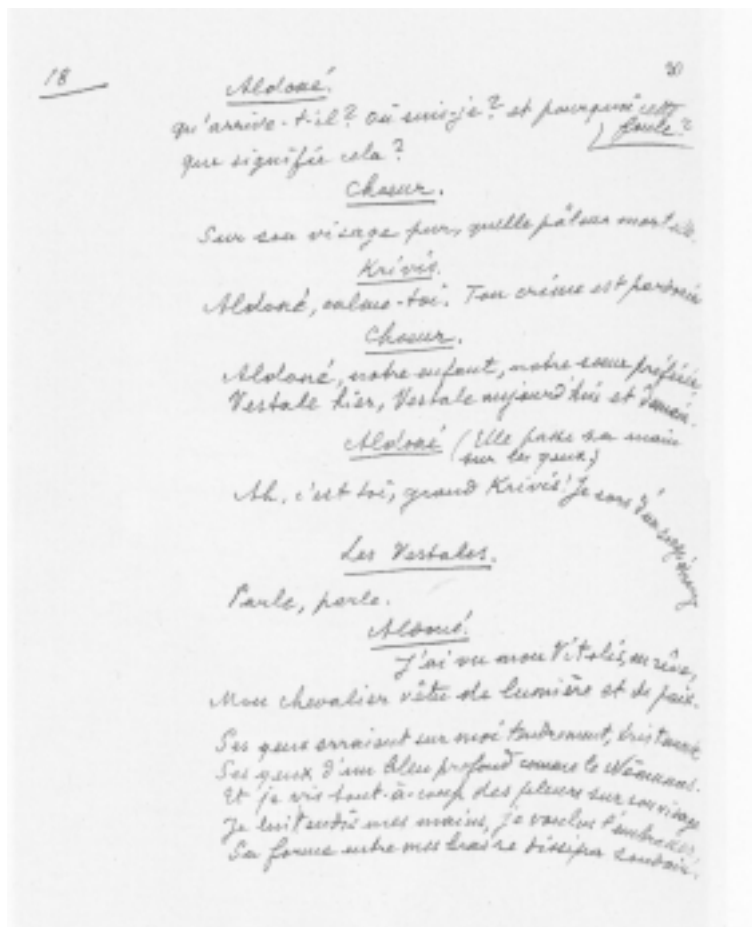 18
Aldoné.
qu'arrive-t-il? Où suis-je? et pourquoi cette
foule?
que signifie cela?
Choeur.
Sur son visage pur, quelle pâleur mortelle.
Krivis.
Aldoné, calme-toi. Ton crime est pardonné
Choeur.
Aldoné, notre enfant, notre soeur préférée,
Vestale hier, Vestale aujourd'hui et demain.
Aldoné (Elle passe sa main
sur les yeux)
Ah, c'est toi, grand Krivis! Je sors d'un
Les Vestales.
Parle, parle.
Aldoné.
J'ai vu mon Vitolis, en rêve,
Mon chevalier vêtu de lumière et de paix.
Ses yeux erraient sur moi tendrement,
Ses yeux d'un bleu profond comme le Némunas.
Et je vis tout-à-coup des pleurs sur son visage
Je lui tendis mes mains, je voulus l'embrasser,
Sa forme entre mes bras se dissipa soudain.